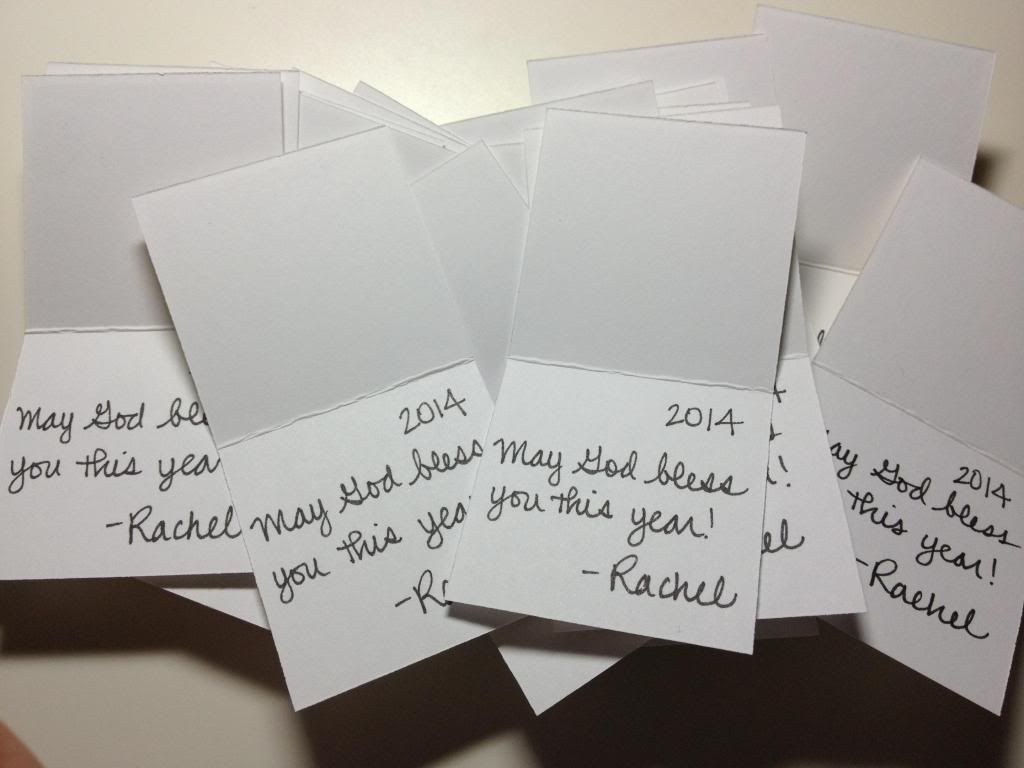 May God
you this
-Rachel
2014
May God bless
you this
2014
May God bless
you this year!
-Rachel
2014
God bless
this year!
-Rachel